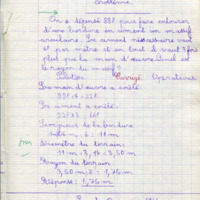 Problème
On a dépensé 88F pour faire entourer
d'une bordure en ciment un massif
circulaire. Le ciment nécessaire vaut
par mètre et en tout il vaut 3 fois
plus que la main d'œuvre. Quel est
le rayon du massif ?
Solution Corrigé Opérations
La main d'œuvre a coûté
88F : 4 = 22F
Le ciment a coûté
22F x 3 = 66F
Longueur de la bordure
11 m
Diamètre du terrain
11 m : 3,14 = 3,50 m
Rayon du terrain
3,50 m : 2 = 1,75 m
Réponse : 1,75 m